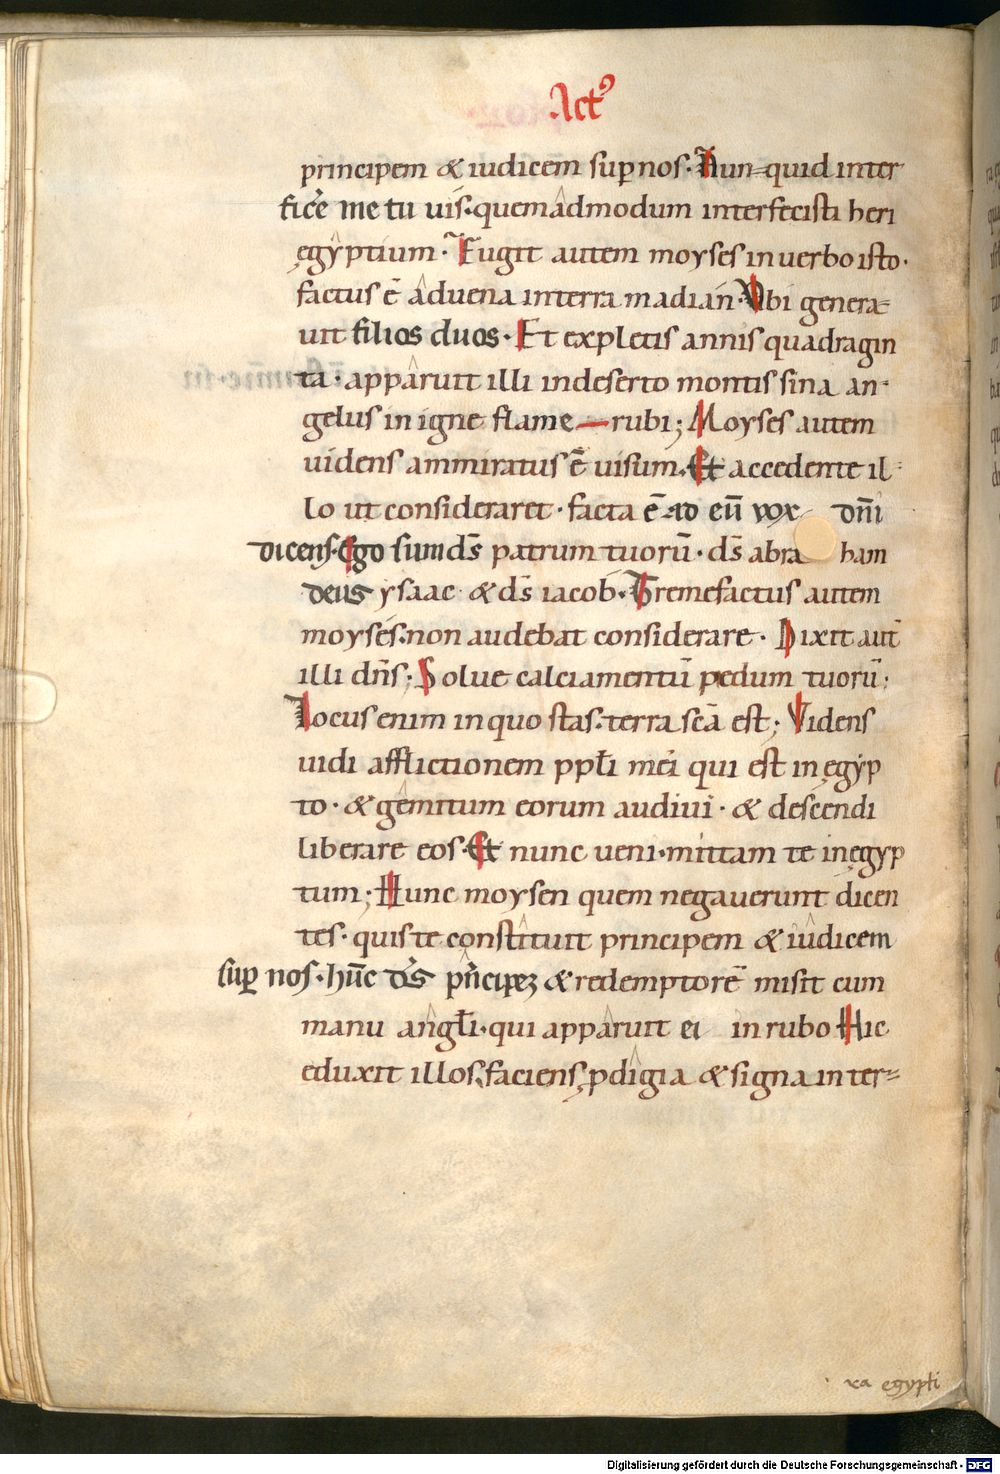 Act⁹
principem & iudicem sup nos. Nun-quid inter
ficẽ me tu uis. quemâdmodum interfecisti heri
ęgŷptium. Fugit autem moyses in uerbo isto.
factus ẽ âduena in terra madián. Vbi genera-
uit filios duos. Et expletis annis quadragin
ta. appâruit illi in deserto montis sina an-
gelus in igne flame — rubi; Moyses autem
uidens ammiratus ẽ uisum. Et accedente il-
lo ut consideraret. facta ẽ ad eũ vox dñi
dicens. Ego sum ds̄ patrum tuorũ. ds̄ abra ham
deus ysaac & ds̄ iacob. Tremefactus autem
moyses. non audebat considerare. Dixit aut̃
illi dñs; Solue calciamentũ pedum tuorũ;
Locus enim in quo stas. terra scã est; Videns
uidi afflictionem pplĩ mei qui est in ęgyp
to. & gêmitum eorum audiui. & descendi
liberare eos. Et nunc ueni. mittam te in ęgyp
tum; Hunc moysen quem negauerunt dicen
tes. quis te constîtuit principem & iûdicem
sup nos. hũc ds̄ pñcipeʒ & redemptorẽ misit cum
manu ângłi. qui appâruit ei in rubo Hic
eduxit illos, faciens pdîgia & signa in ter-
ra egypti
Digitalisierung gefördert durch die Deutsche Forschungsgemeinschaft - DFG